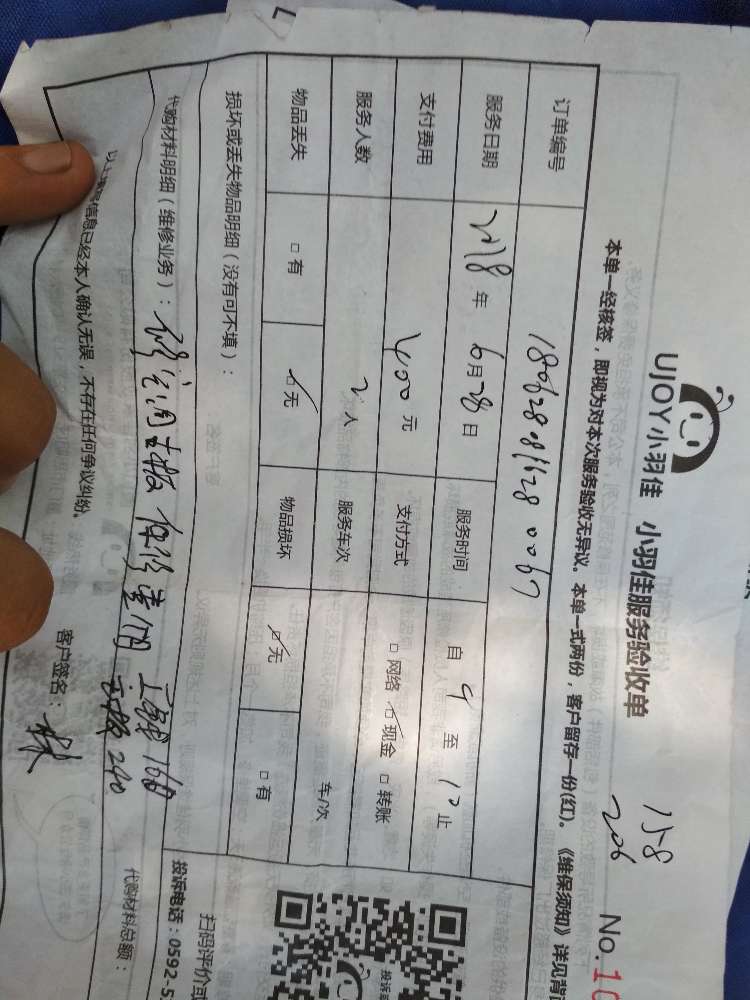 UJOY小羽佳 小羽佳服务验收单
158
206
No.10
本单一经核签，即视为对本次服务验收无异议。本单一式两份，客户留存一份(红)。《维保须知》详见背
订单编号 180628081128 0067
服务日期 2018年 6月28日 服务时间 自 9 至 10 止
支付费用 400元 支付方式 □ 网络 ☑ 现金 □ 转账
服务人数 2人 服务车次 车/次
物品丢失 □ 有 ☑ 无 物品损坏 ☑ 无 □ 有
损坏或丢失物品明细（没有可不填）：
代购材料明细（维修业务）：修空调主板 保修壹個 工 160
主板 240
代购材料总额：
以上 信息已经本人确认无误，不存在任何争议纠纷。 客户签名：林
投诉
扫码评价或
投诉电话：0592-5